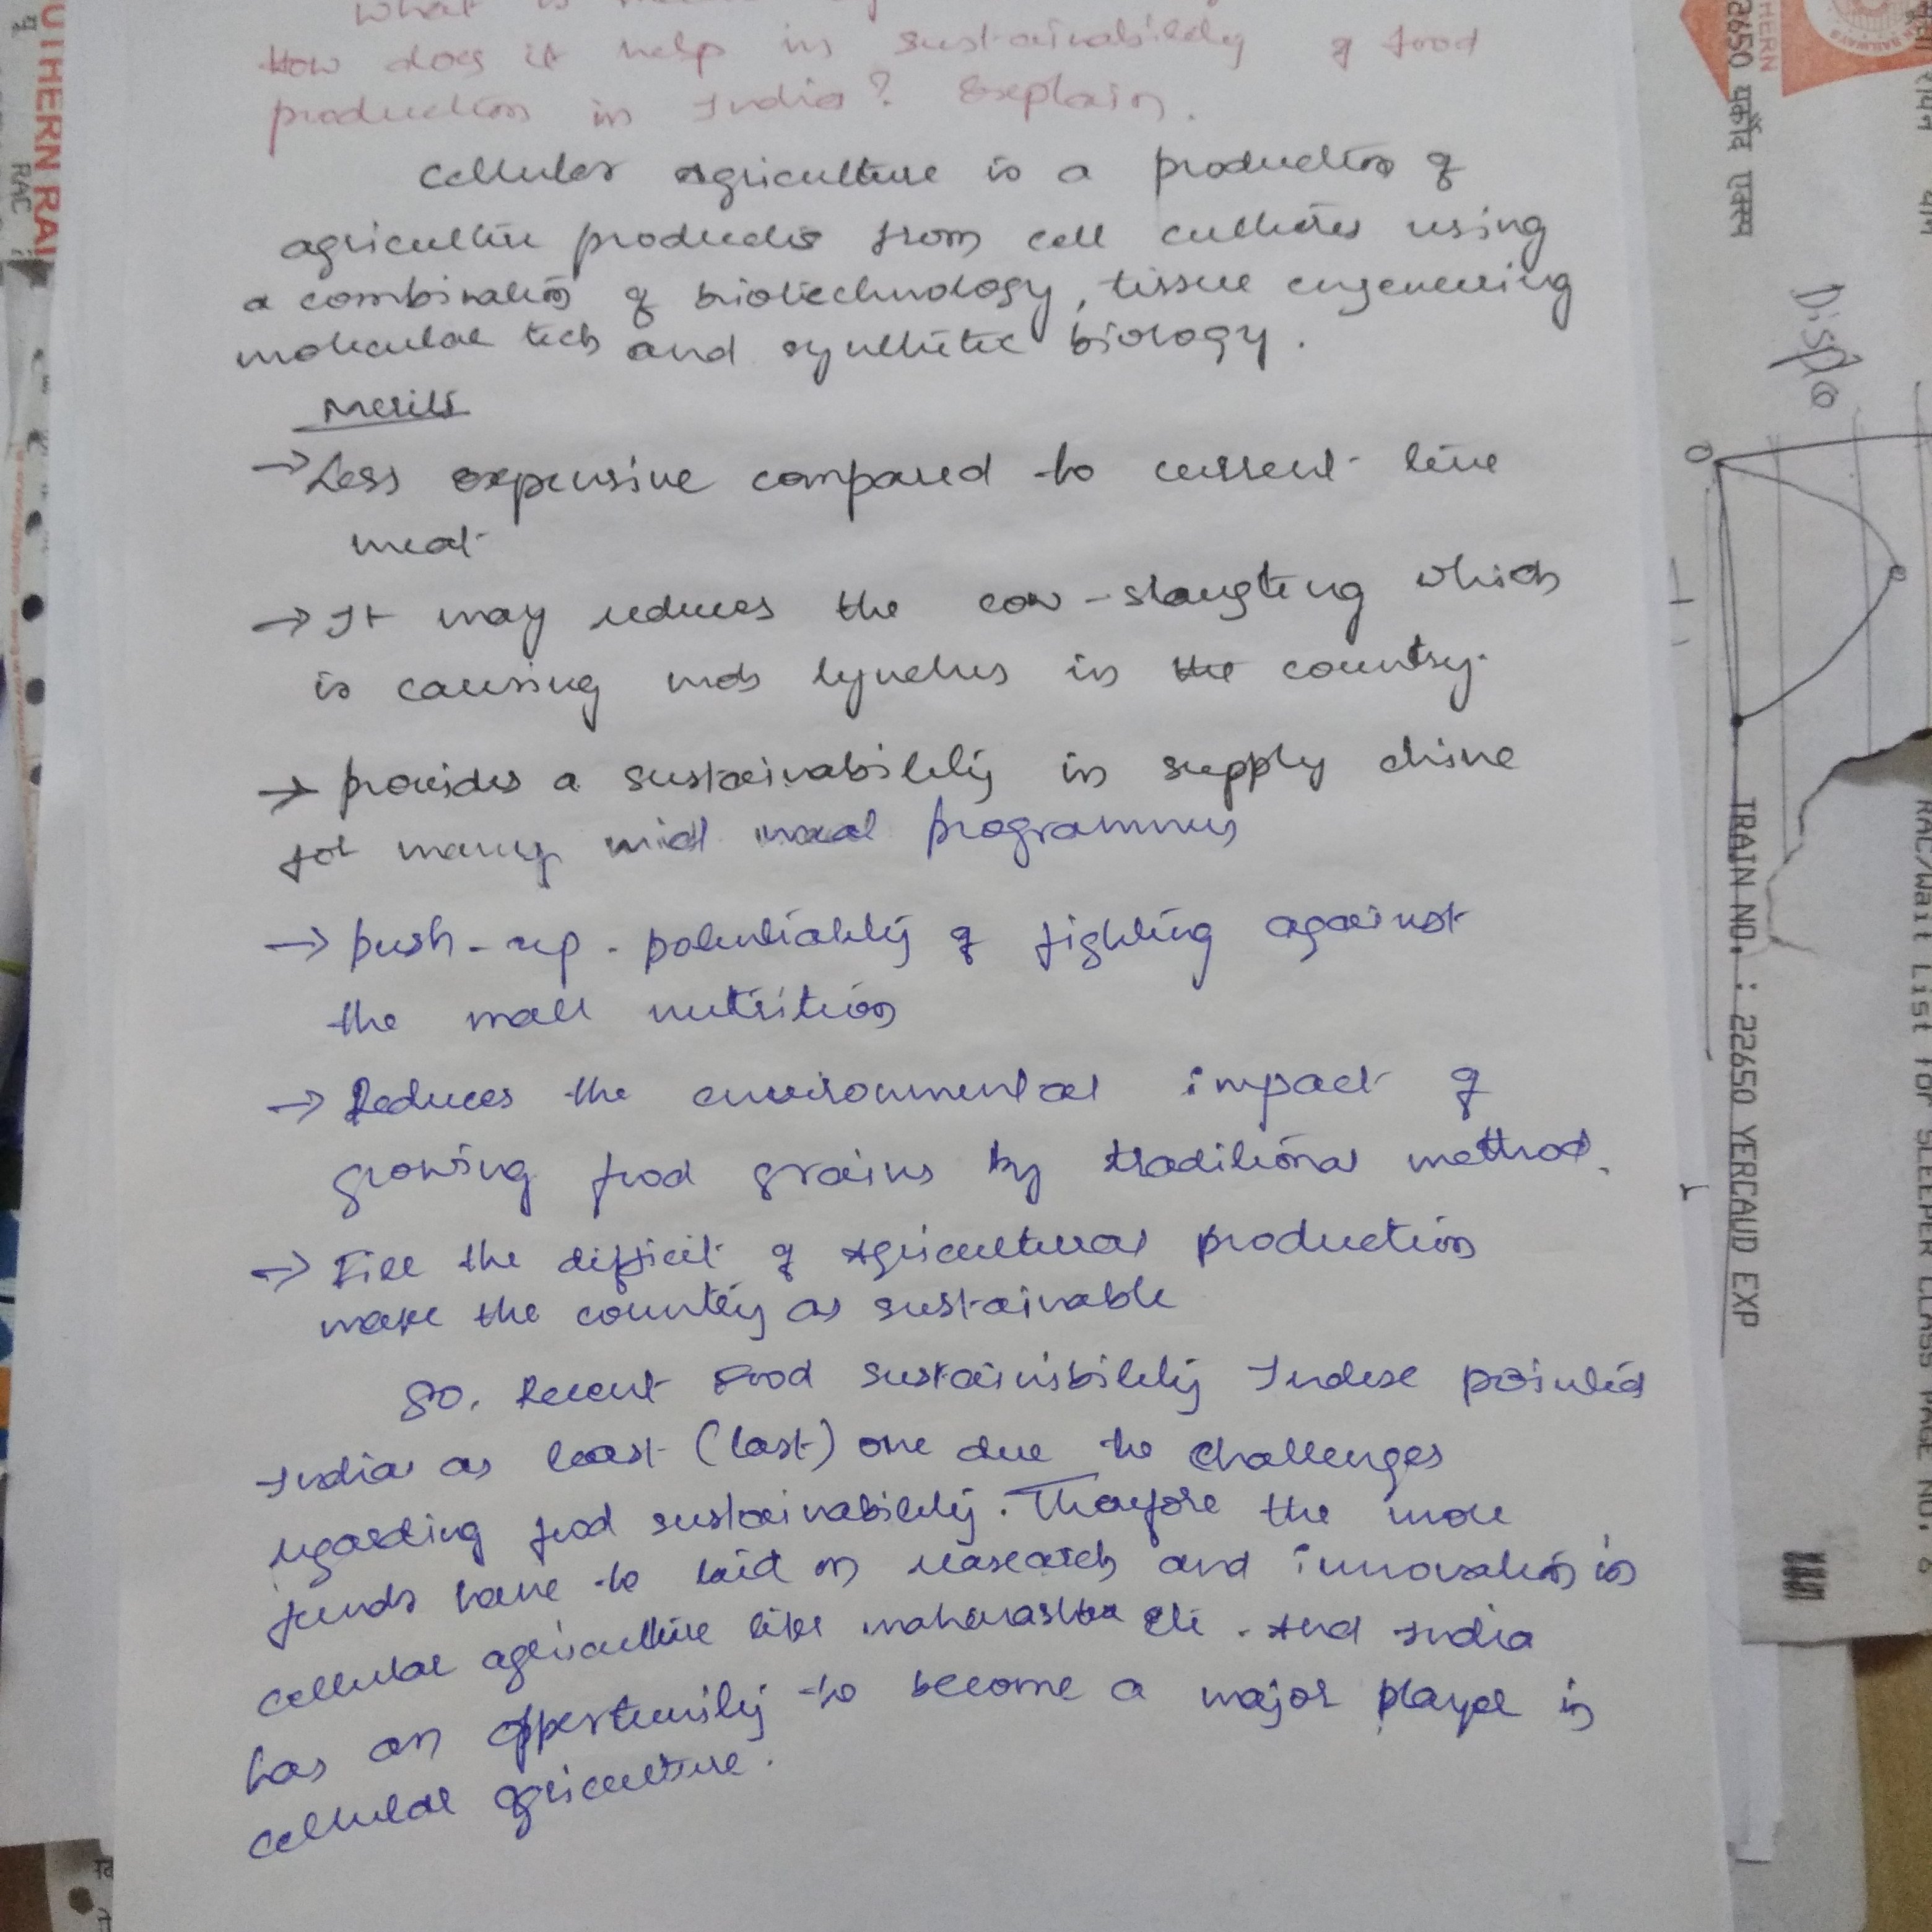 What is
How does it help in sustainability of food
production in India? Explain.
Cellular agriculture is a production of
agriculture products from cell cultures using
a combination of biotechnology, tissue engeneering
molecular tech and synthetic biology.
Merits
→ Less expensive compared to current live
meat
→ It may reduces the cow-slaugting which
is causing mob lynches in the country.
→ provides a sustainability in supply chine
for many mid meal programmes
→ push-up-potentiality of fighting against
the mall nutrition
→ Reduces the environmental impact of
growing food grains by traditional method.
→ Fill the difficit of agricultural production
make the country as sustainable
So, Recent Food sustainibility Index pointed
India as least (last) one due to challenges
regarding food sustainability. Therfore the more
funds have to laid on research and innovation in
cellular agriculture like maharashtra etc. And India
has an oppertunity to become a major player in
cellular agriculture.
UTHERN RAI
RAC
THERN
22650 एर्काड एक्स
Dispo
TRAIN NO. : 22650 YERCAUD EXP
RAC/Wait List for SLEEPER CLASS PAGE NO.